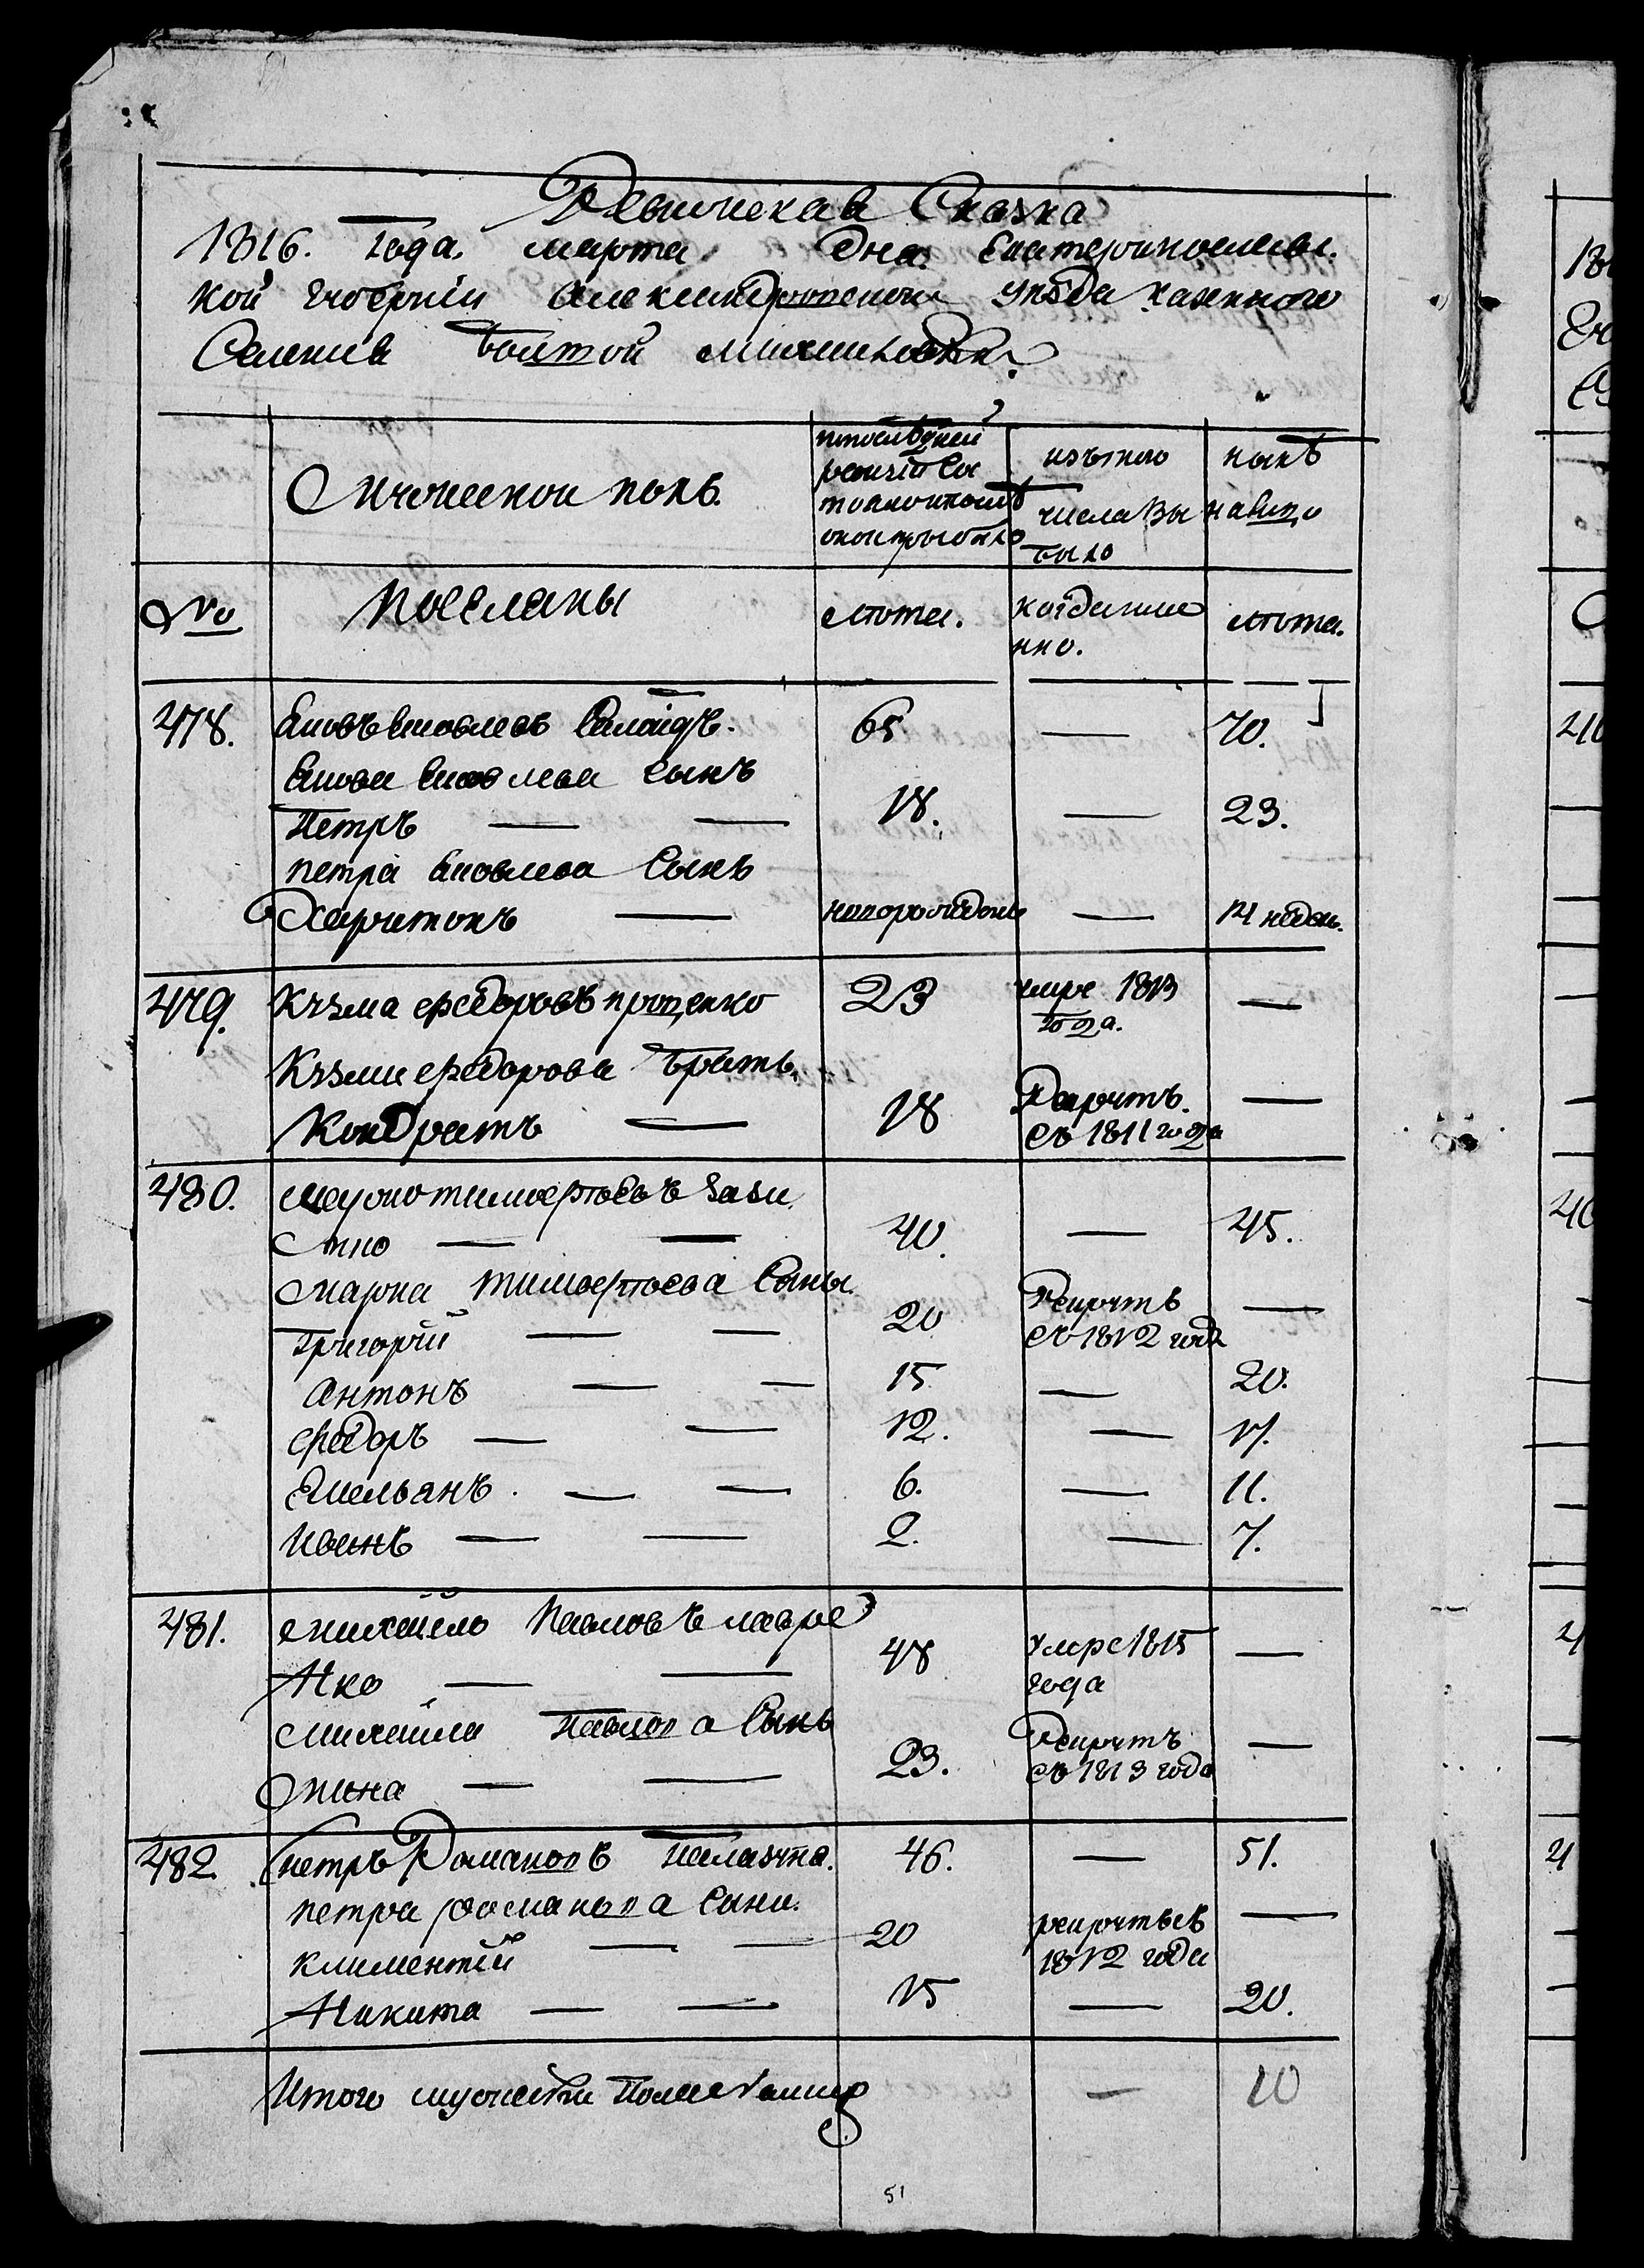 Ревижская Сказка
1816. года. марта дна. Екатеринославс.
кой губернiи Александровского уѣзда казенного
Селенiя Болшой Михайловки.
Мужеской полъ.
попослѣдней ревизiи состояло и после оной прыбыло
изътого числа выбыло
нынѣ налицо
№
Поселяны
лѣта.
когда имянно.
лѣта.
478. Яковъ Яковлевъ 65 — 70.
Якова Яковлева Сынъ
Петръ — — 18. — 23.
Петра Яковлева Сынъ
Харитонъ — новорожденъ — 14 недель.
479. Кузма Федоровъ Проценко 23 умре 1813 года. —
Кузмы Федорова братъ.
Кондратъ — 18 Рекрутъ. съ 1811 года —
480. Марко Тимофѣевъ
— — 40. — 45.
Марка Тимофѣева Сыны.
Григорiй — — 20 Рекрутъ съ 1812 года —
Антонъ — — 15 — 20.
Федоръ — — 12. — 17.
Емельанъ. — — 6. — 11.
Иванъ — — 2. — 7.
481. Михайло Павловъ Лавре
Нко — — 48 умре 1815 года —
Михайла Павлова Сынъ
Мина — — 23. Рекрутъ съ 1813 года —
482. Петръ Романовъ 46. — 51.
Петра Романова Сыны.
Климентiй — — 20 рекрутъ съ 1812 года —
Никита — — 15 — 20.
Итого мужеска пола на лицо — 10
51